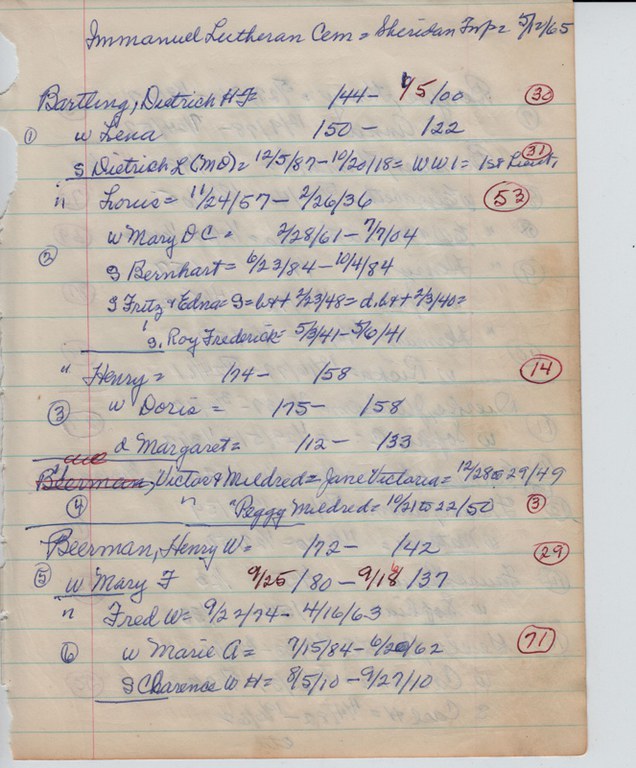 Immanuel Lutheran Cem = Sheridan Twp = 5/12/65
Bartling, Dietrich H F = /44 - 1/5/00 (30)
(1) w Lena /50 - /22
S Dietrich L (MD) = 12/5/87 - 10/20/18 = WW1 = 1st Lieut. (31)
" Louis = 11/24/57 - 2/26/36 (53)
w Mary D C = 2/28/61 - 7/7/04
(2) S Bernhart = 6/23/84 - 10/4/84
S Fritz & Edna = S = b&t 2/23/48 = d. b&t 2/3/40 =
S. Roy Frederick = 5/3/41 - 5/6/41
" Henry = /74 - /58 (14)
(3) w Doris = /75 - /58
d Margaret = /12 - /33
Beerman, Victor & Mildred = Jane Victoria = 12/28 to 29/49
(4) " "Peggy Mildred = 10/21 to 22/50 (3)
Beerman, Henry W = /72 - /42 (29)
(5) w Mary F 9/25/80 - 9/18/37
" Fred W = 9/22/74 - 4/16/63
(6) w Marie A = 7/15/84 - 6/20/62 (71)
S Clarence W H = 8/5/10 - 9/27/10